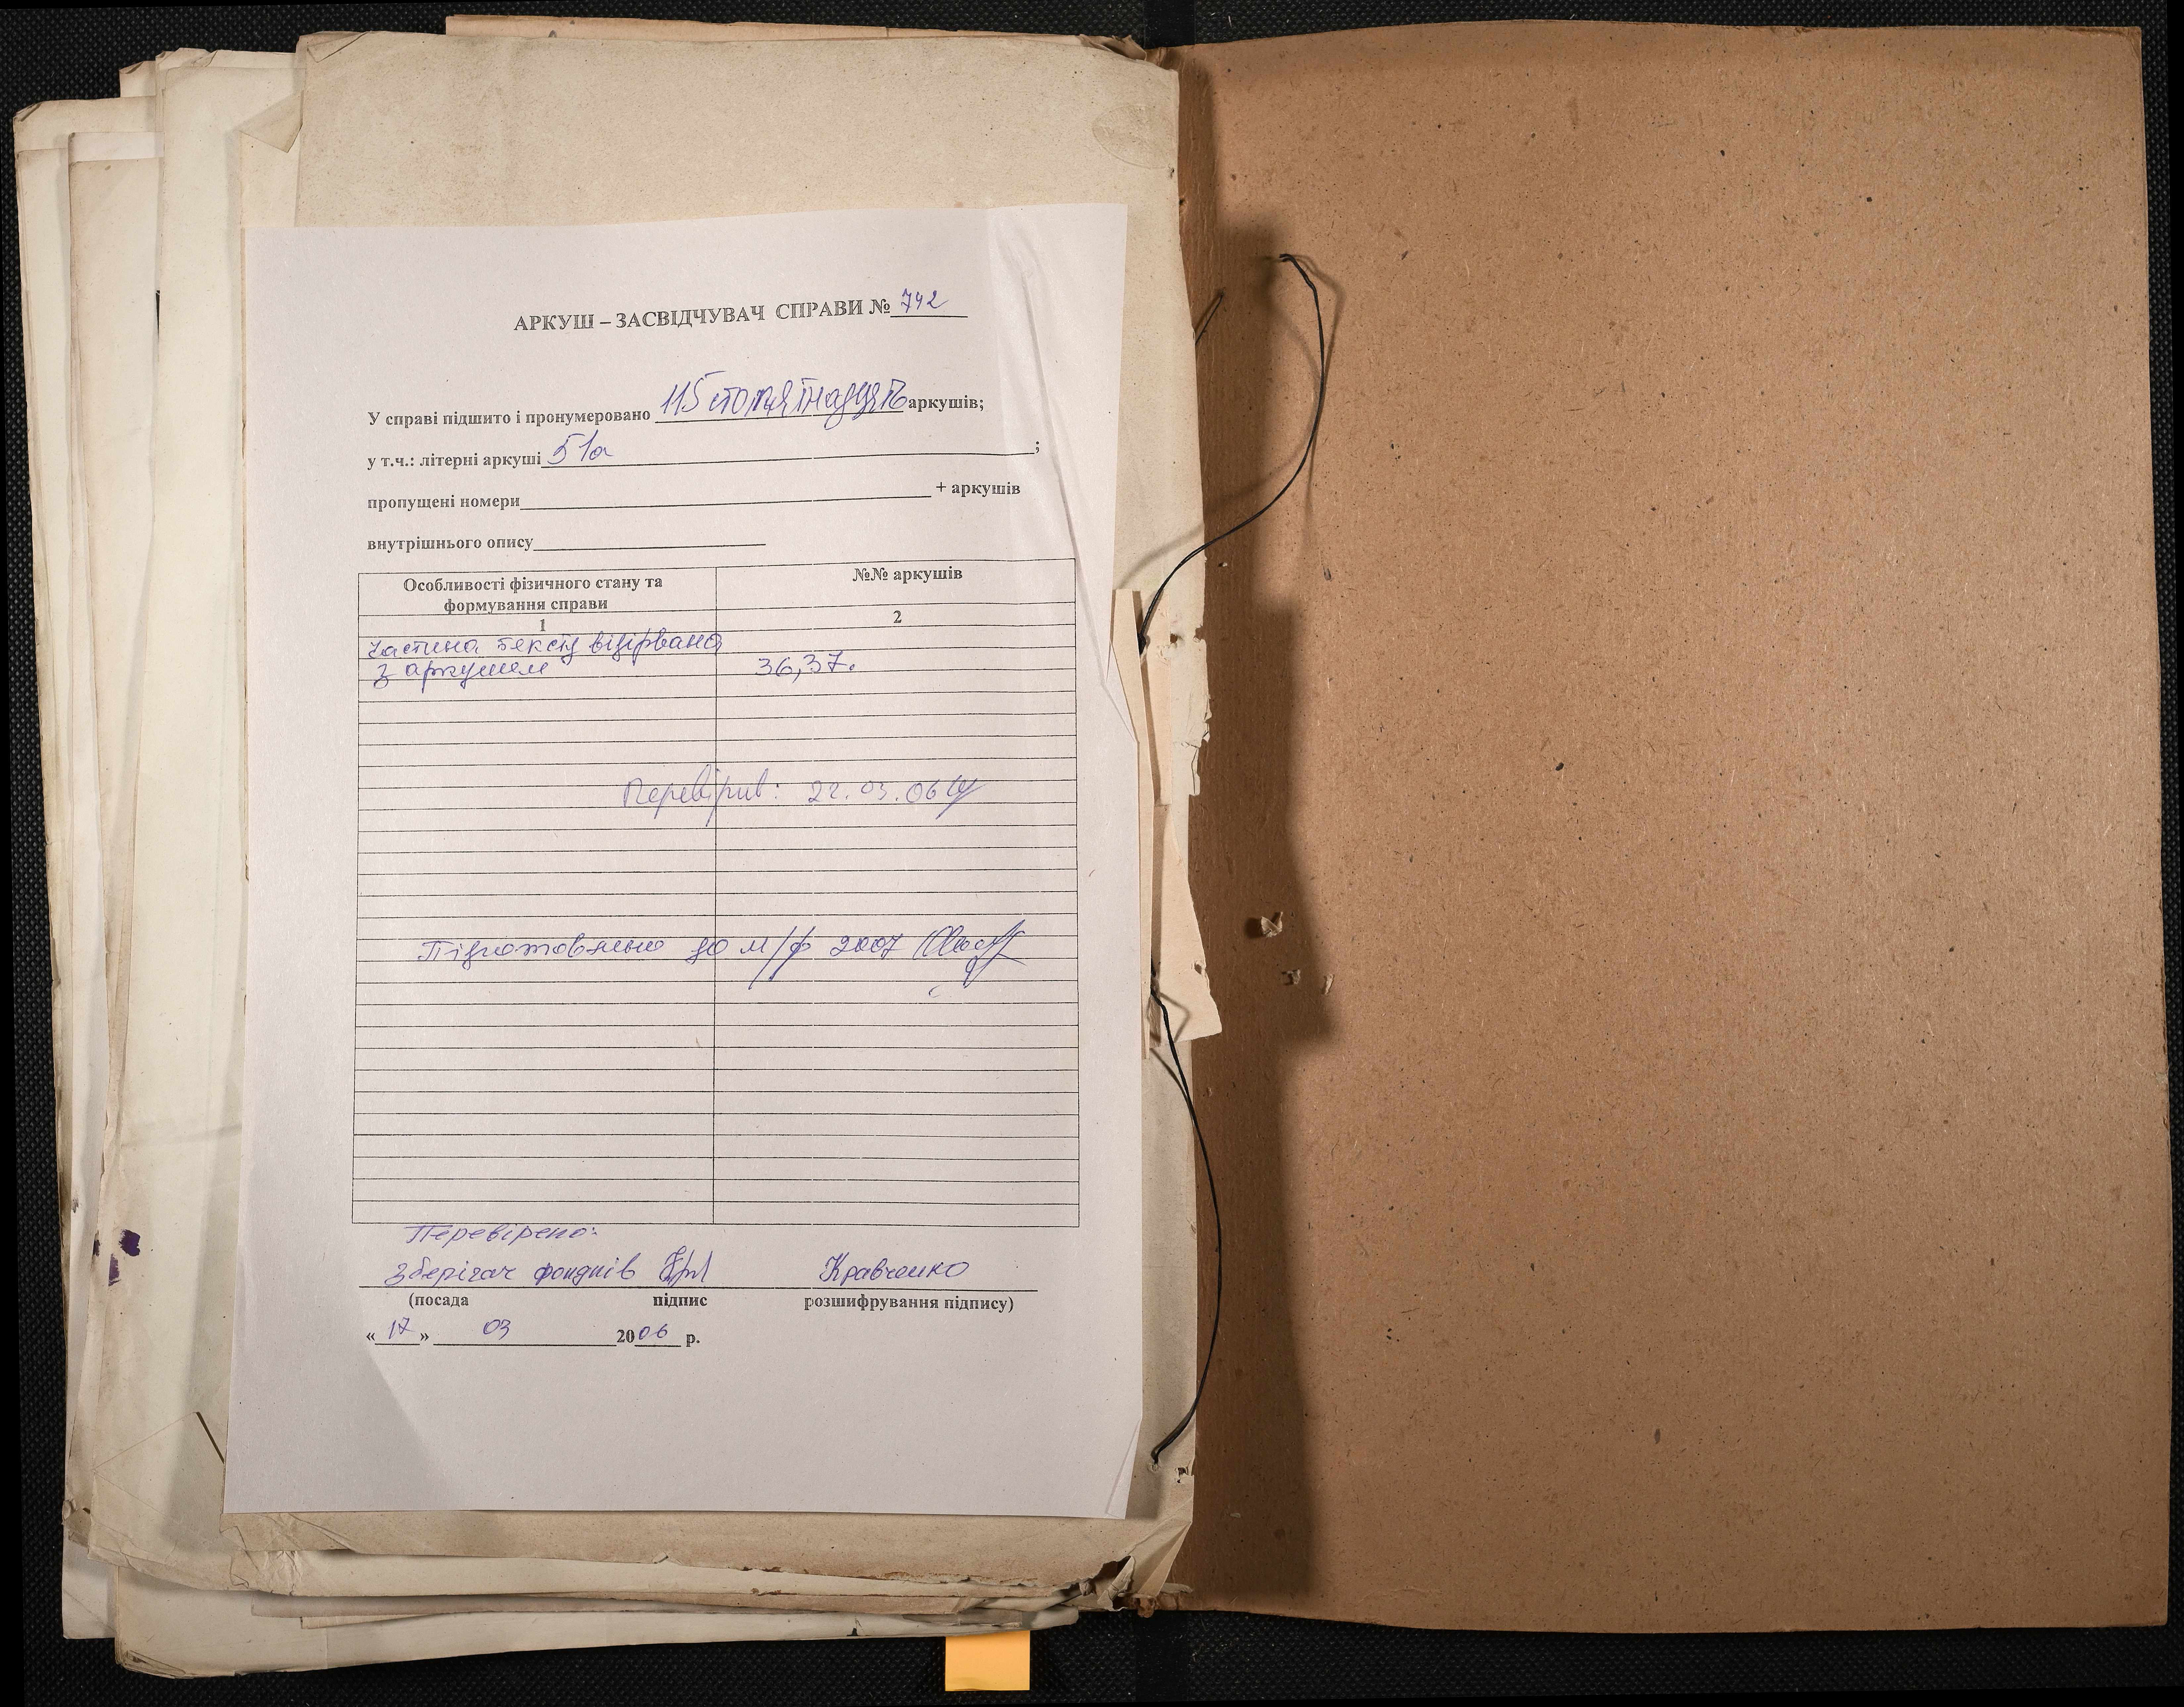 АРКУШ – ЗАСВІДЧУВАЧ СПРАВИ № 742
У справі підшито і пронумеровано 115 стоп'ятнадцять аркушів;
у т.ч.: літерні аркуші 51а ;
пропущені номери + аркушів
внутрішнього опису
Особливості фізичного стану та формування справи
№№ аркушів
1
2
Частина тексту відірвана
з аркушем 36,37.
Перевірив: 22.03.06
Підготовлено до м/ф 2007
Перевірено:
Зберігач фондів Кравченко
(посада підпис розшифрування підпису)
« 17 » 03 2006 р.